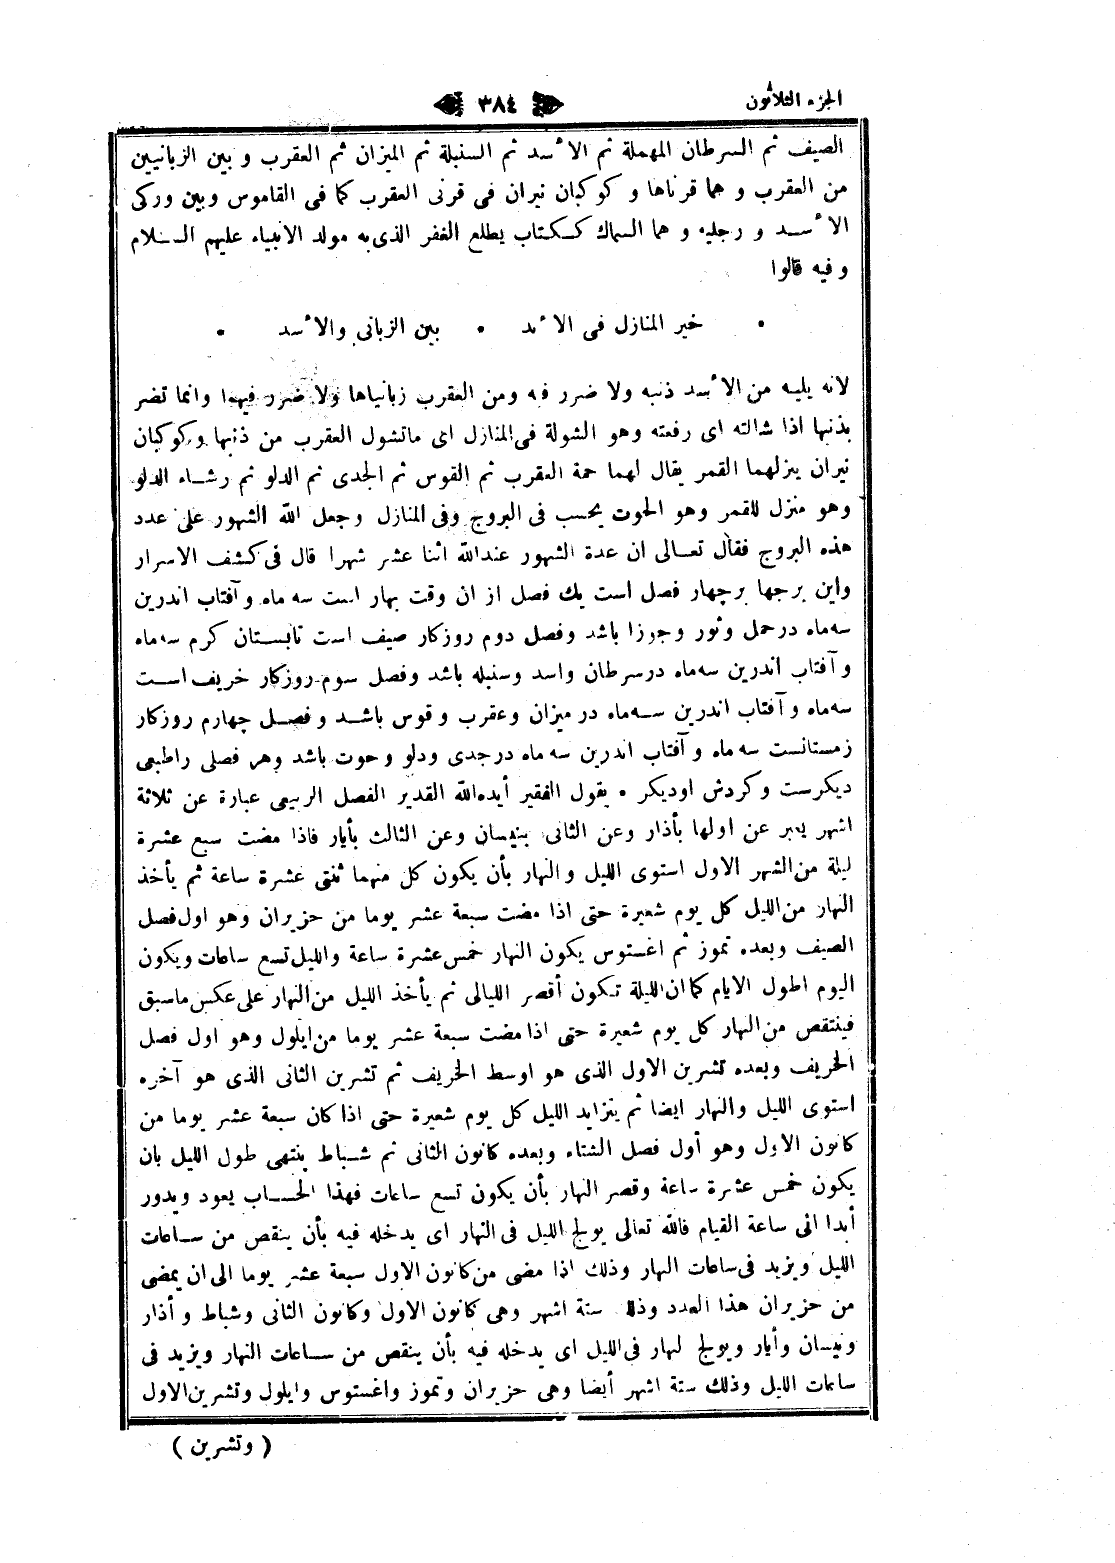 الجزء الثلاثون
٣٨٤
الصيف ثم السرطان المهملة ثم الأسد ثم السنبلة ثم الميزان ثم العقرب و بين الزبانيين
من العقرب و هما قرناها و كوكبان نيران فى قرنى العقرب كما فى القاموس وبين وركى
الأسد و رجليه و هما السماك ككتاب يطلع الغفر الذى به مولد الانبياء عليهم السلام
و فيه قالوا
• خير المنازل فى الأبد • بين الزبانى والأسد •
لانه يليه من الأسد ذنبه ولا ضرر فيه ومن العقرب زبانياها ولا ضرر فيهما وانما تضر
بذنبها اذا شالته اى رفعته وهو الشولة فى المنازل اى ماتشول العقرب من ذنبها وكوكبان
نيران ينزلهما القمر يقال لهما حمة العقرب ثم القوس ثم الجدى ثم الدلو ثم رشاء الدلو
وهو منزل للقمر وهو الحوت يحسب فى البروج وفى المنازل وجعل الله الشهور على عدد
هذه البروج فقال تعالى ان عدة الشهور عندالله اثنا عشر شهرا قال فى كشف الاسرار
واين برجها برچهار فصل است يك فصل از ان وقت بهار است سه ماه و آفتاب اندرين
سه‌ماه درحمل وثور وجوزا باشد وفصل دوم روزكار صيف است تابستان كرم سه‌ماه
و آفتاب اندرين سه‌ماه درسرطان واسد وسنبله باشد وفصل سوم روزكار خريف است
سه‌ماه و آفتاب اندرين سه‌ماه در ميزان وعقرب و قوس باشد و فصل چهارم روزكار
زمستانست سه ماه و آفتاب اندرين سه ماه درجدى ودلو و حوت باشد وهر فصلى راطبعى
ديكرست وكردش اوديكر • يقول الفقير أيده‌الله القدير الفصل الربيعى عبارة عن ثلاثة
اشهر يعبر عن اولها بأذار وعن الثانى بنيسان وعن الثالث بأيار فاذا مضت سبع عشرة
ليلة من الشهر الاول استوى الليل والنهار بأن يكون كل منهما ثنتى عشرة ساعة ثم يأخذ
النهار من الليل كل يوم شعيرة حتى اذا مضت سبعة عشر يوما من حزيران وهو اول فصل
الصيف وبعده تموز ثم اغستوس يكون النهار خمس‌عشرة ساعة والليل تسع ساعات ويكون
اليوم اطول الايام كما ان الليلة تكون أقصر الليالى ثم يأخذ الليل من النهار على عكس ماسبق
فينتقص من النهار كل يوم شعيرة حتى اذا مضت سبعة عشر يوما من ايلول وهو اول فصل
الخريف وبعده تشرين الاول الذى هو اوسط الخريف ثم تشرين الثانى الذى هو آخره
استوى الليل والنهار ايضا ثم يتزايد الليل كل يوم شعيرة حتى اذا كان سبعة عشر يوما من
كانون الاول وهو أول فصل الشتاء وبعده كانون الثانى ثم شباط ينتهى طول الليل بان
يكون خمس عشرة ساعة وقصر النهار بأن يكون تسع ساعات فهذا الحساب يعود ويدور
أبدا الى ساعة القيام فالله تعالى يولج الليل فى النهار اى يدخله فيه بأن ينقص من ساعات
الليل ويزيد فى ساعات النهار وذلك اذا مضى من كانون الاول سبعة عشر يوما الى ان يمضى
من حزيران هذا العدد وذلك ستة اشهر وهى كانون الاول وكانون الثانى وشباط و أذار
ونيسان وأيار ويولج النهار فى الليل اى يدخله فيه بأن ينقص من ساعات النهار ويزيد فى
ساعات الليل وذلك ستة اشهر أيضا وهى حزيران وتموز واغستوس وايلول وتشرين الاول
( وتشرين )